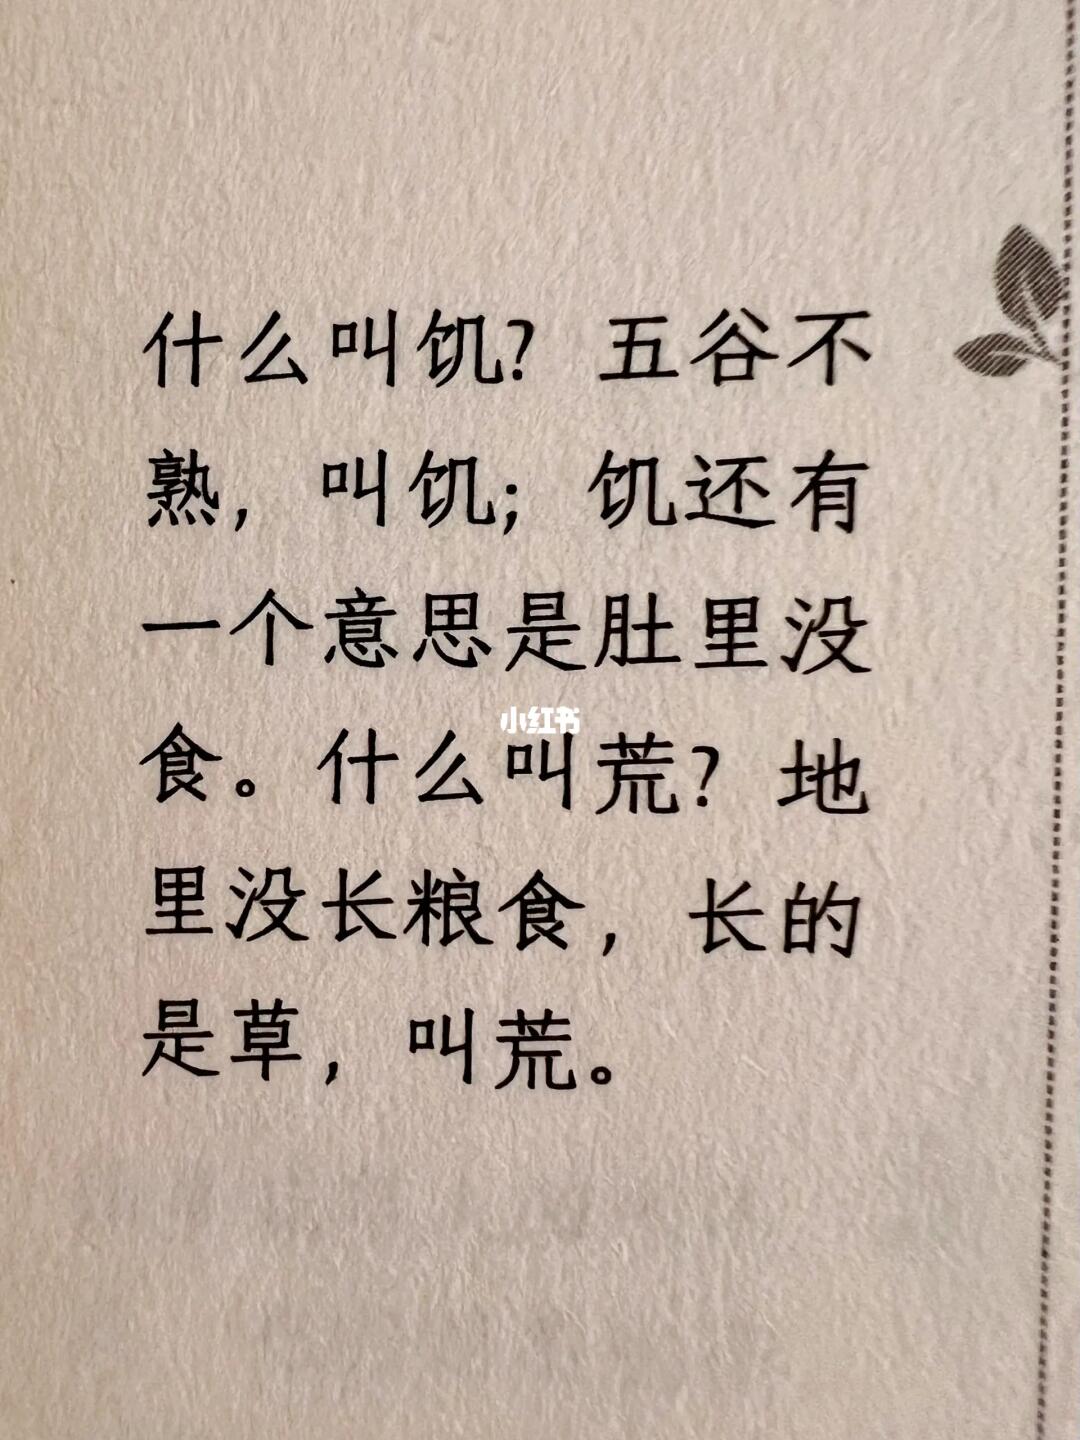 什么叫饥？五谷不
熟，叫饥；饥还有
一个意思是肚里没
食。什么叫荒？地
里没长粮食，长的
是草，叫荒。
小红书